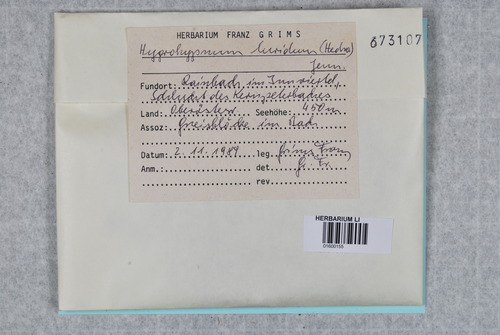 HERBARIUM FRANZ GRIMS
673107
Hygrohypnum luridum (Hedw.)
Jenn.
Fundort: Rainbach im Innviertel,
des
Land: Oberösterr. Seehöhe: 450m
Assoz: im Bach
Datum: 2.11.1989 leg. Grims Franz
Anm.: det Gr. Fr.
rev.
HERBARIUM LI
01600155